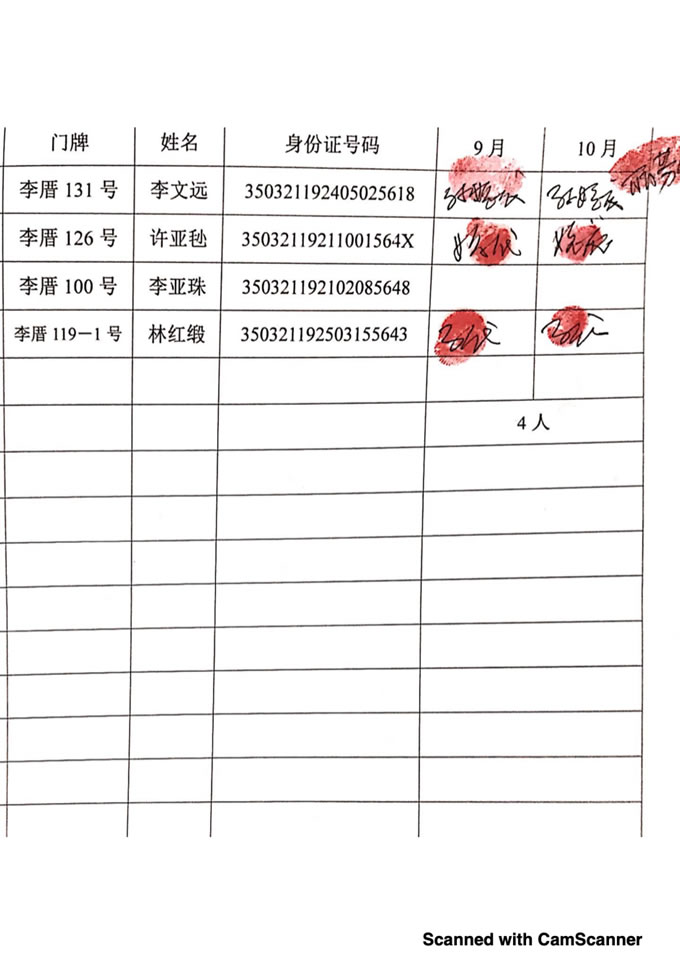 门牌 姓名 身份证号码 9月 10月
李厝 131 号 李文远 350321192405025618
李厝 126 号 许亚毡 35032119211001564X
李厝 100 号 李亚珠 350321192102085648
李厝 119－1 号 林红缎 350321192503155643
4 人
Scanned with CamScanner